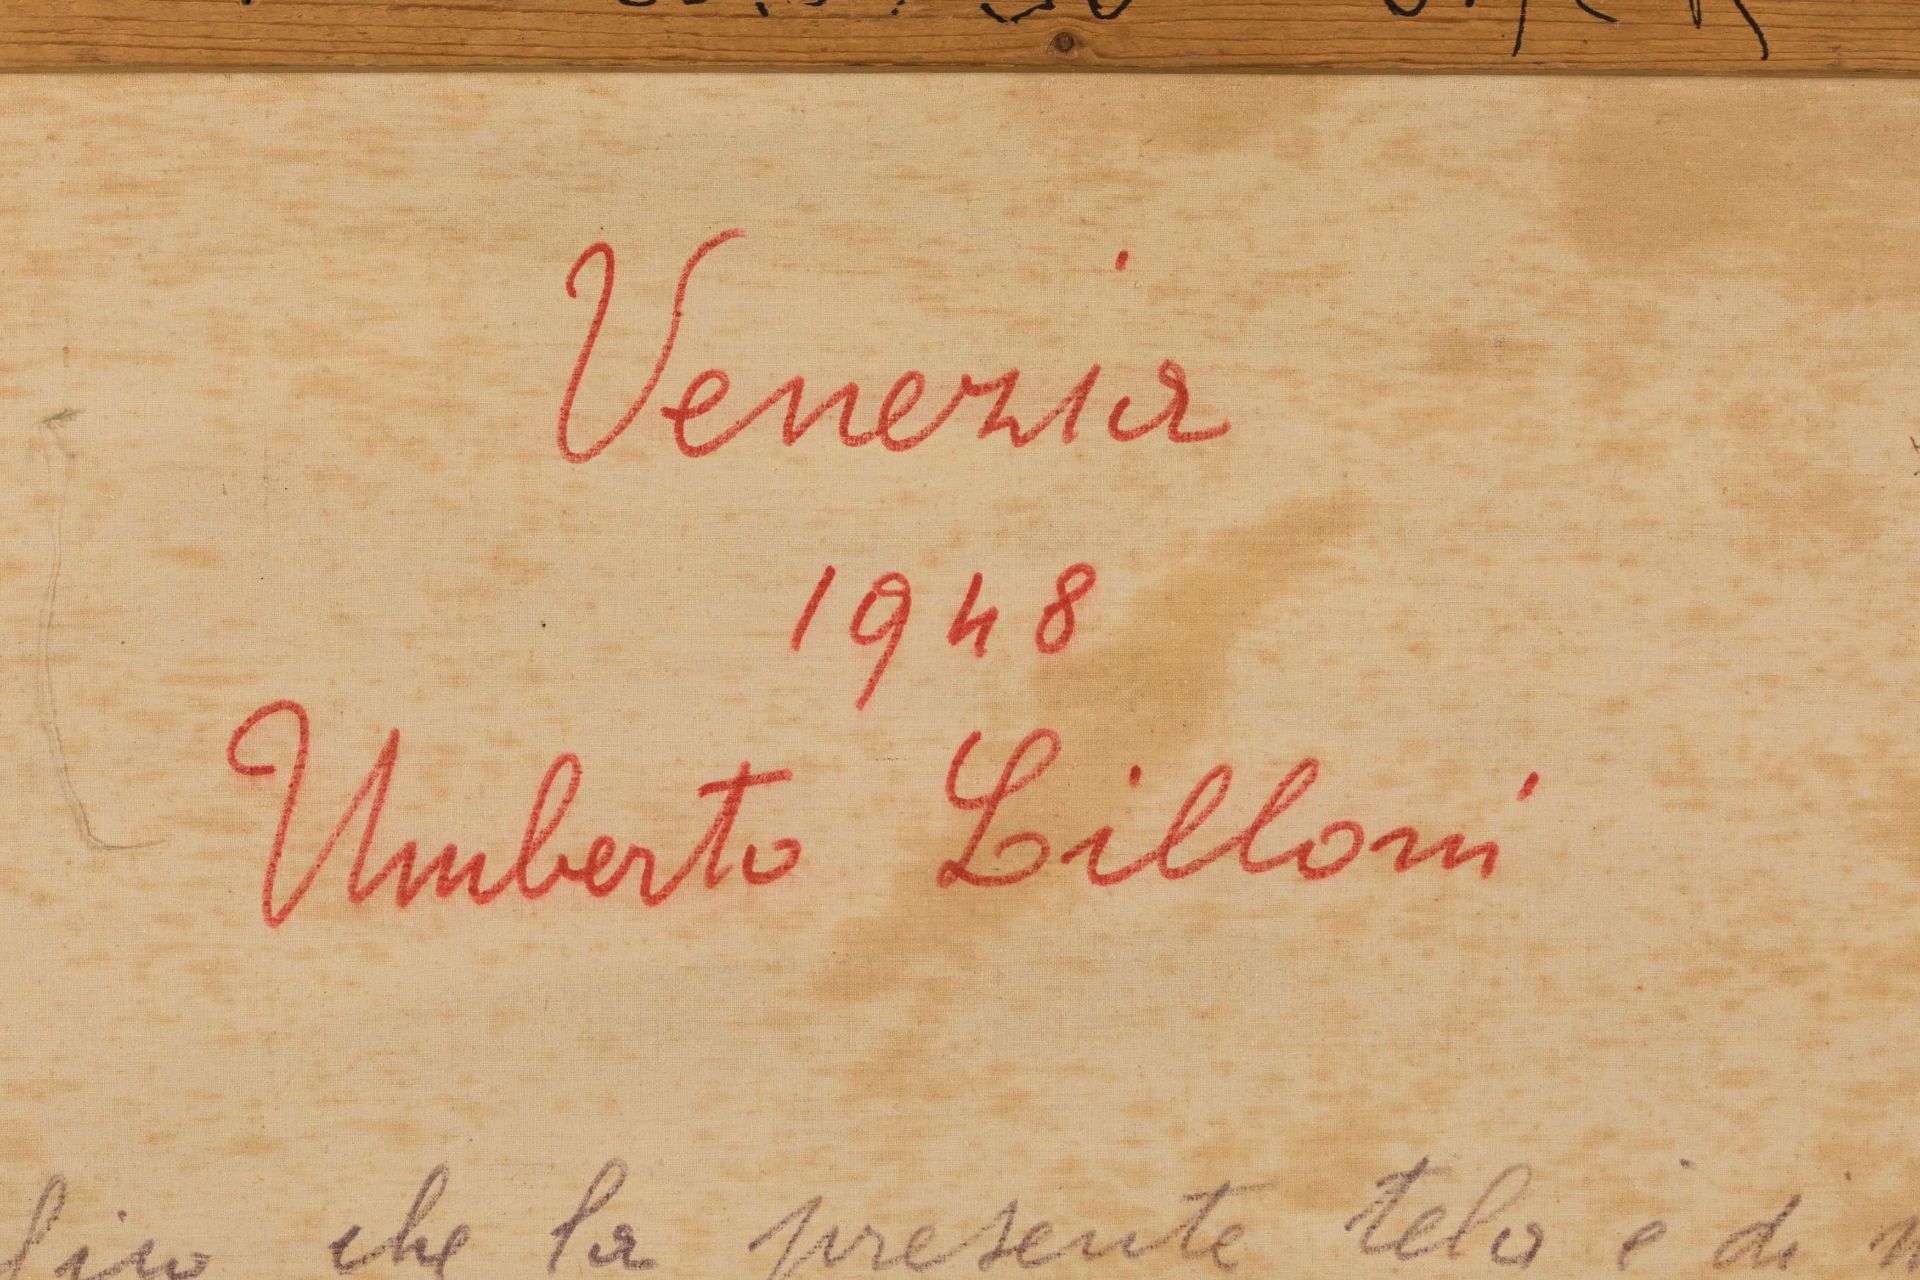 Venezia
1948
Umberto Lilloni
che la presente tela è di